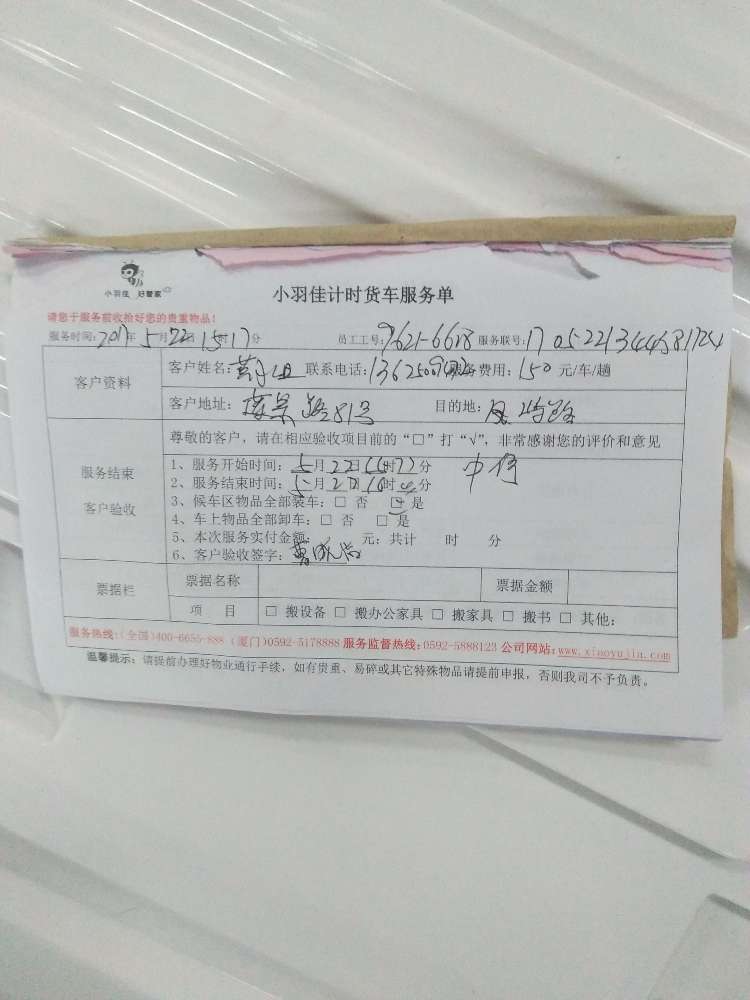 小羽佳 好管家
小羽佳计时货车服务单
请您于服务前收检好您的贵重物品！
服务时间：2017年5月22日15时17分 员工工号：9621-6618 服务联号：
客户资料
客户姓名： 联系电话： 服务费用：150元/车/趟
客户地址： 81号 目的地：
服务结束
客户验收
尊敬的客户，请在相应验收项目前的“□”打“√”，非常感谢您的评价和意见
1、服务开始时间：5月22日 时 分
2、服务结束时间：5月 日 时 分
3、候车区物品全部装车：□ 否 □ 是
4、车上物品全部卸车：□ 否 □ 是
5、本次服务实付金额： 元；共计 时 分
6、客户验收签字：
票据栏
票据名称 票据金额
项 目 □ 搬设备 □ 搬办公家具 □ 搬家具 □ 搬书 □ 其他：
服务热线：（全国）400-6655-888（厦门）0592-5178888 服务监督热线：0592-5888123 公司网站：www.xiaoyujia.com
温馨提示：请提前办理好物业通行手续，如有贵重、易碎或其它特殊物品请提前申报，否则我司不予负责。